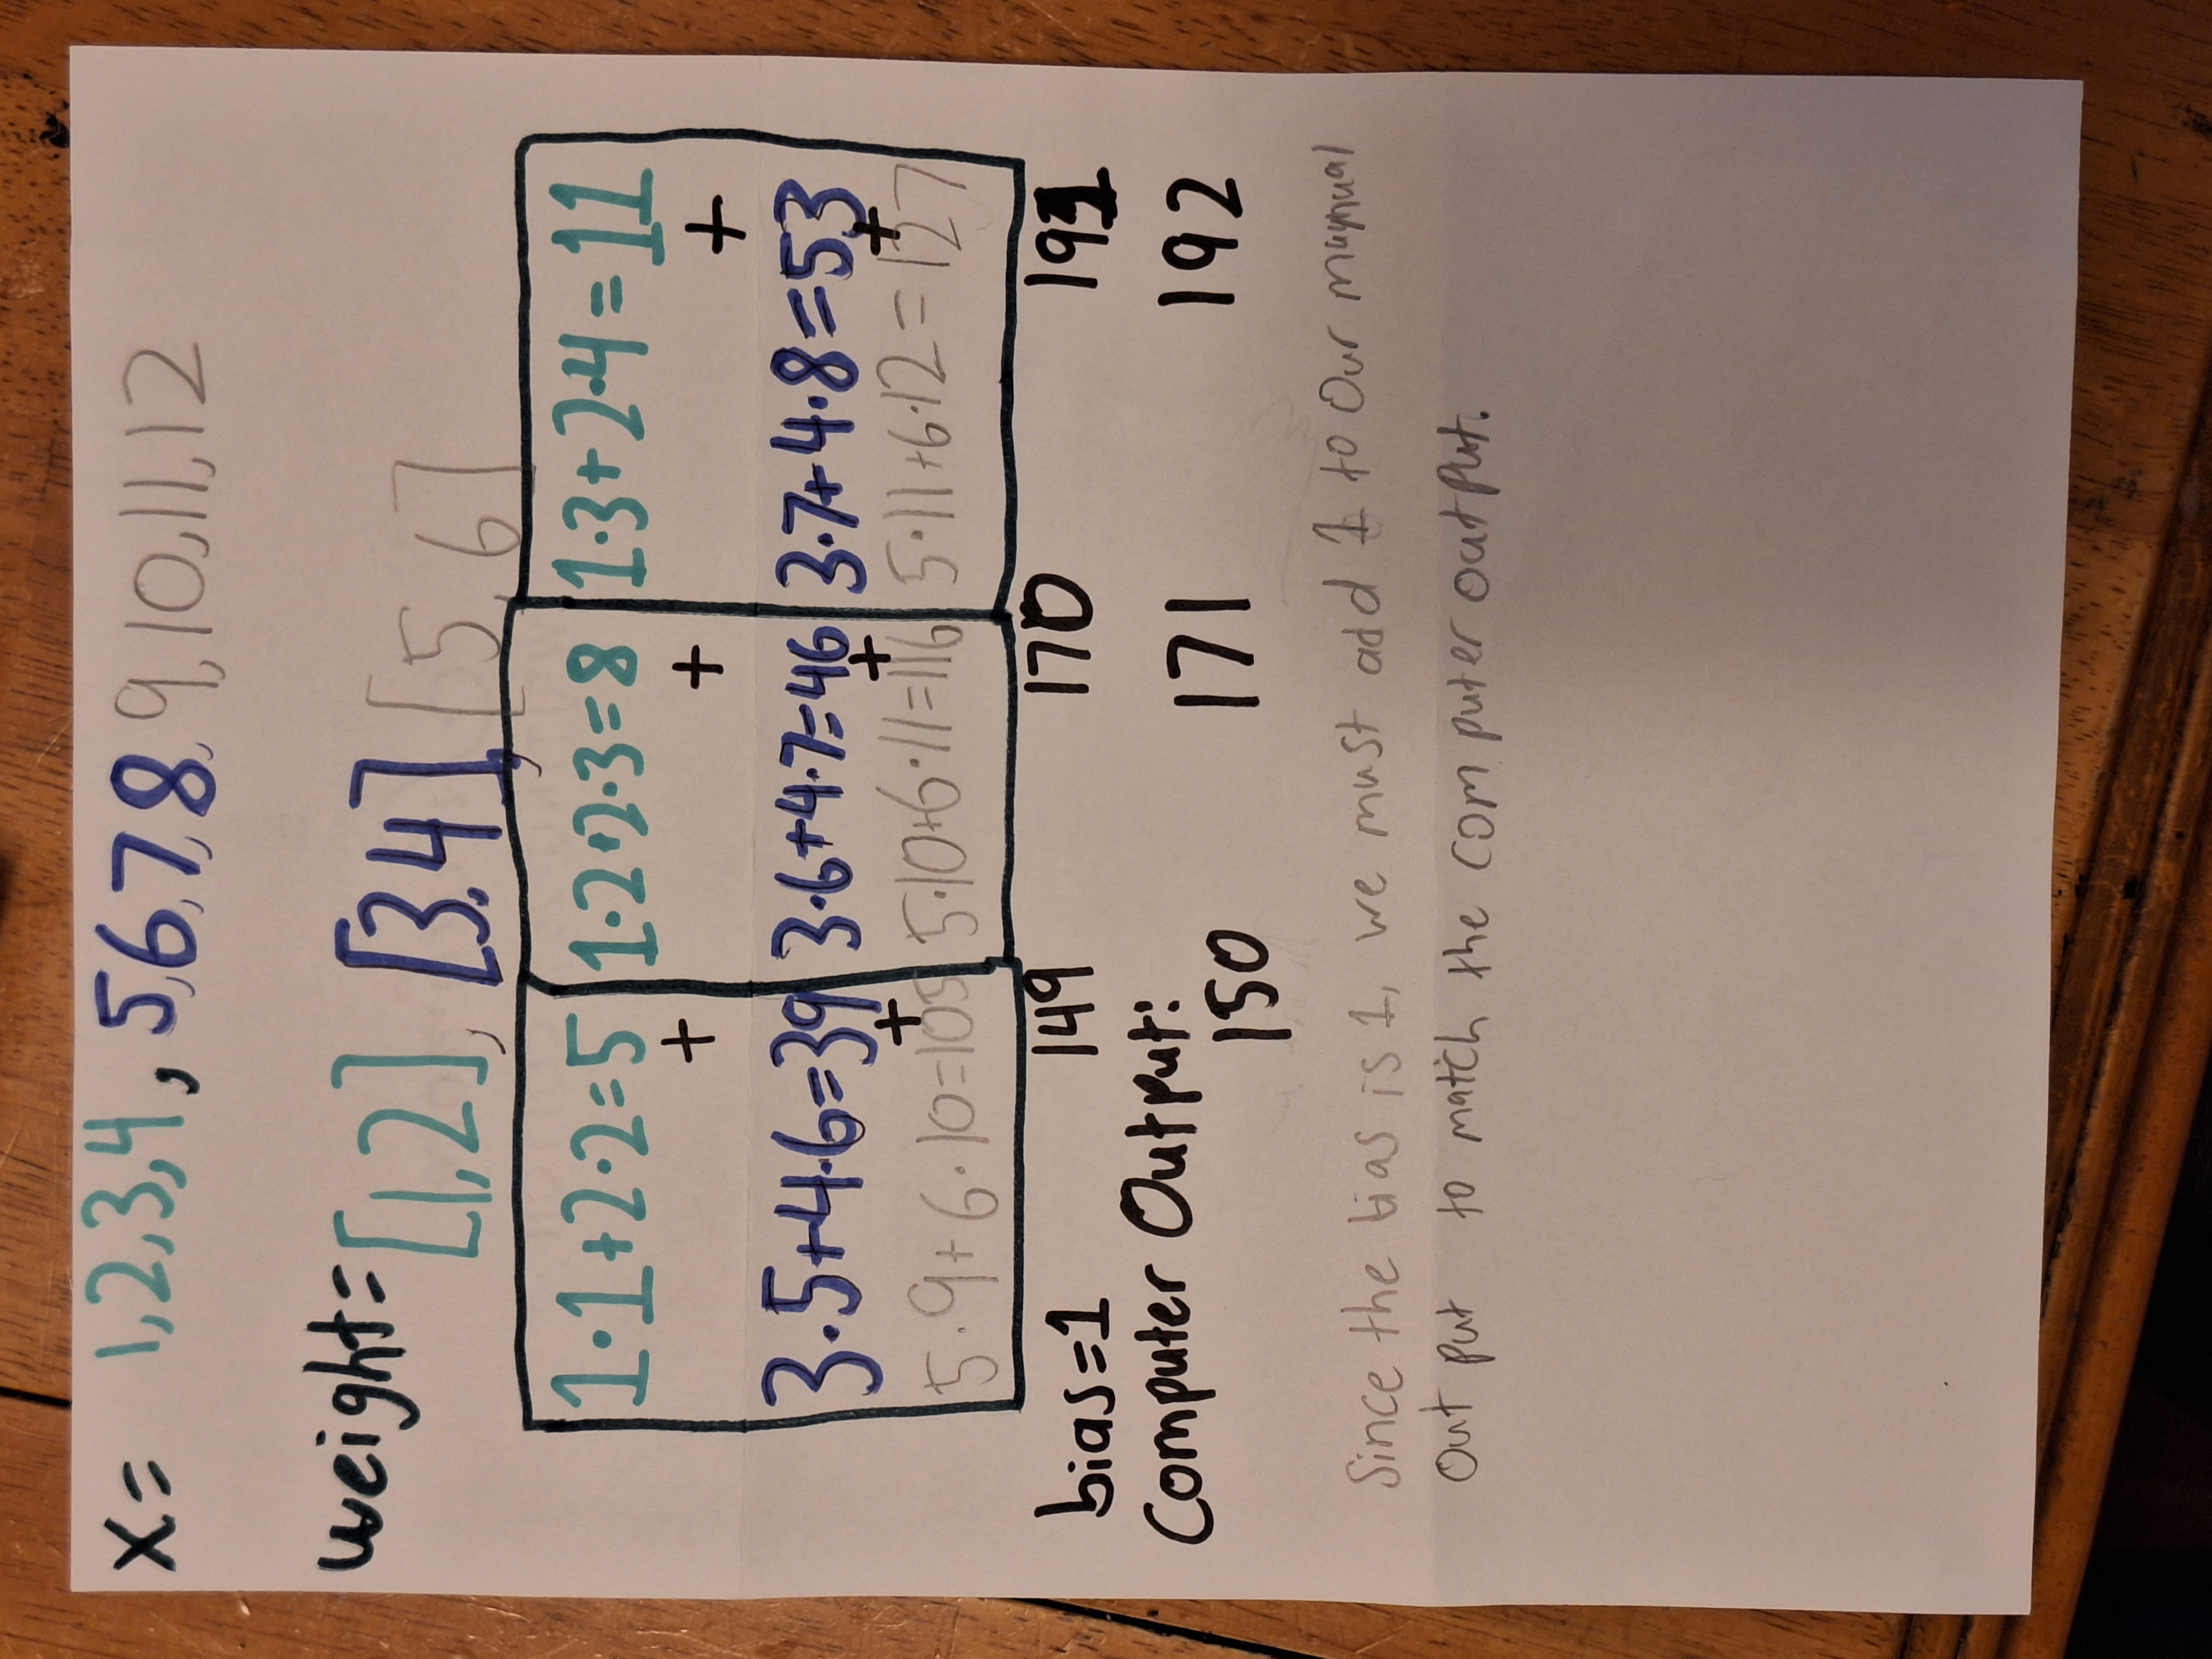 x= 1,2,3,4, 5,6,7,8, 9,10,11,12
weight= [1,2], [3,4], [5,6]
1·1+2·2=5 1·2+2·3=8 1·3+2·4=11
+ + +
3·5+4·6=39 3·6+4·7=46 3·7+4·8=53
+ + +
5·9+6·10=105 5·10+6·11=116 5·11+6·12=127
bias=1 149 170 191
Computer Output:
150 171 192
Since the bias is 1, we must add 1 to Our maynual
Out put to match the computer output.